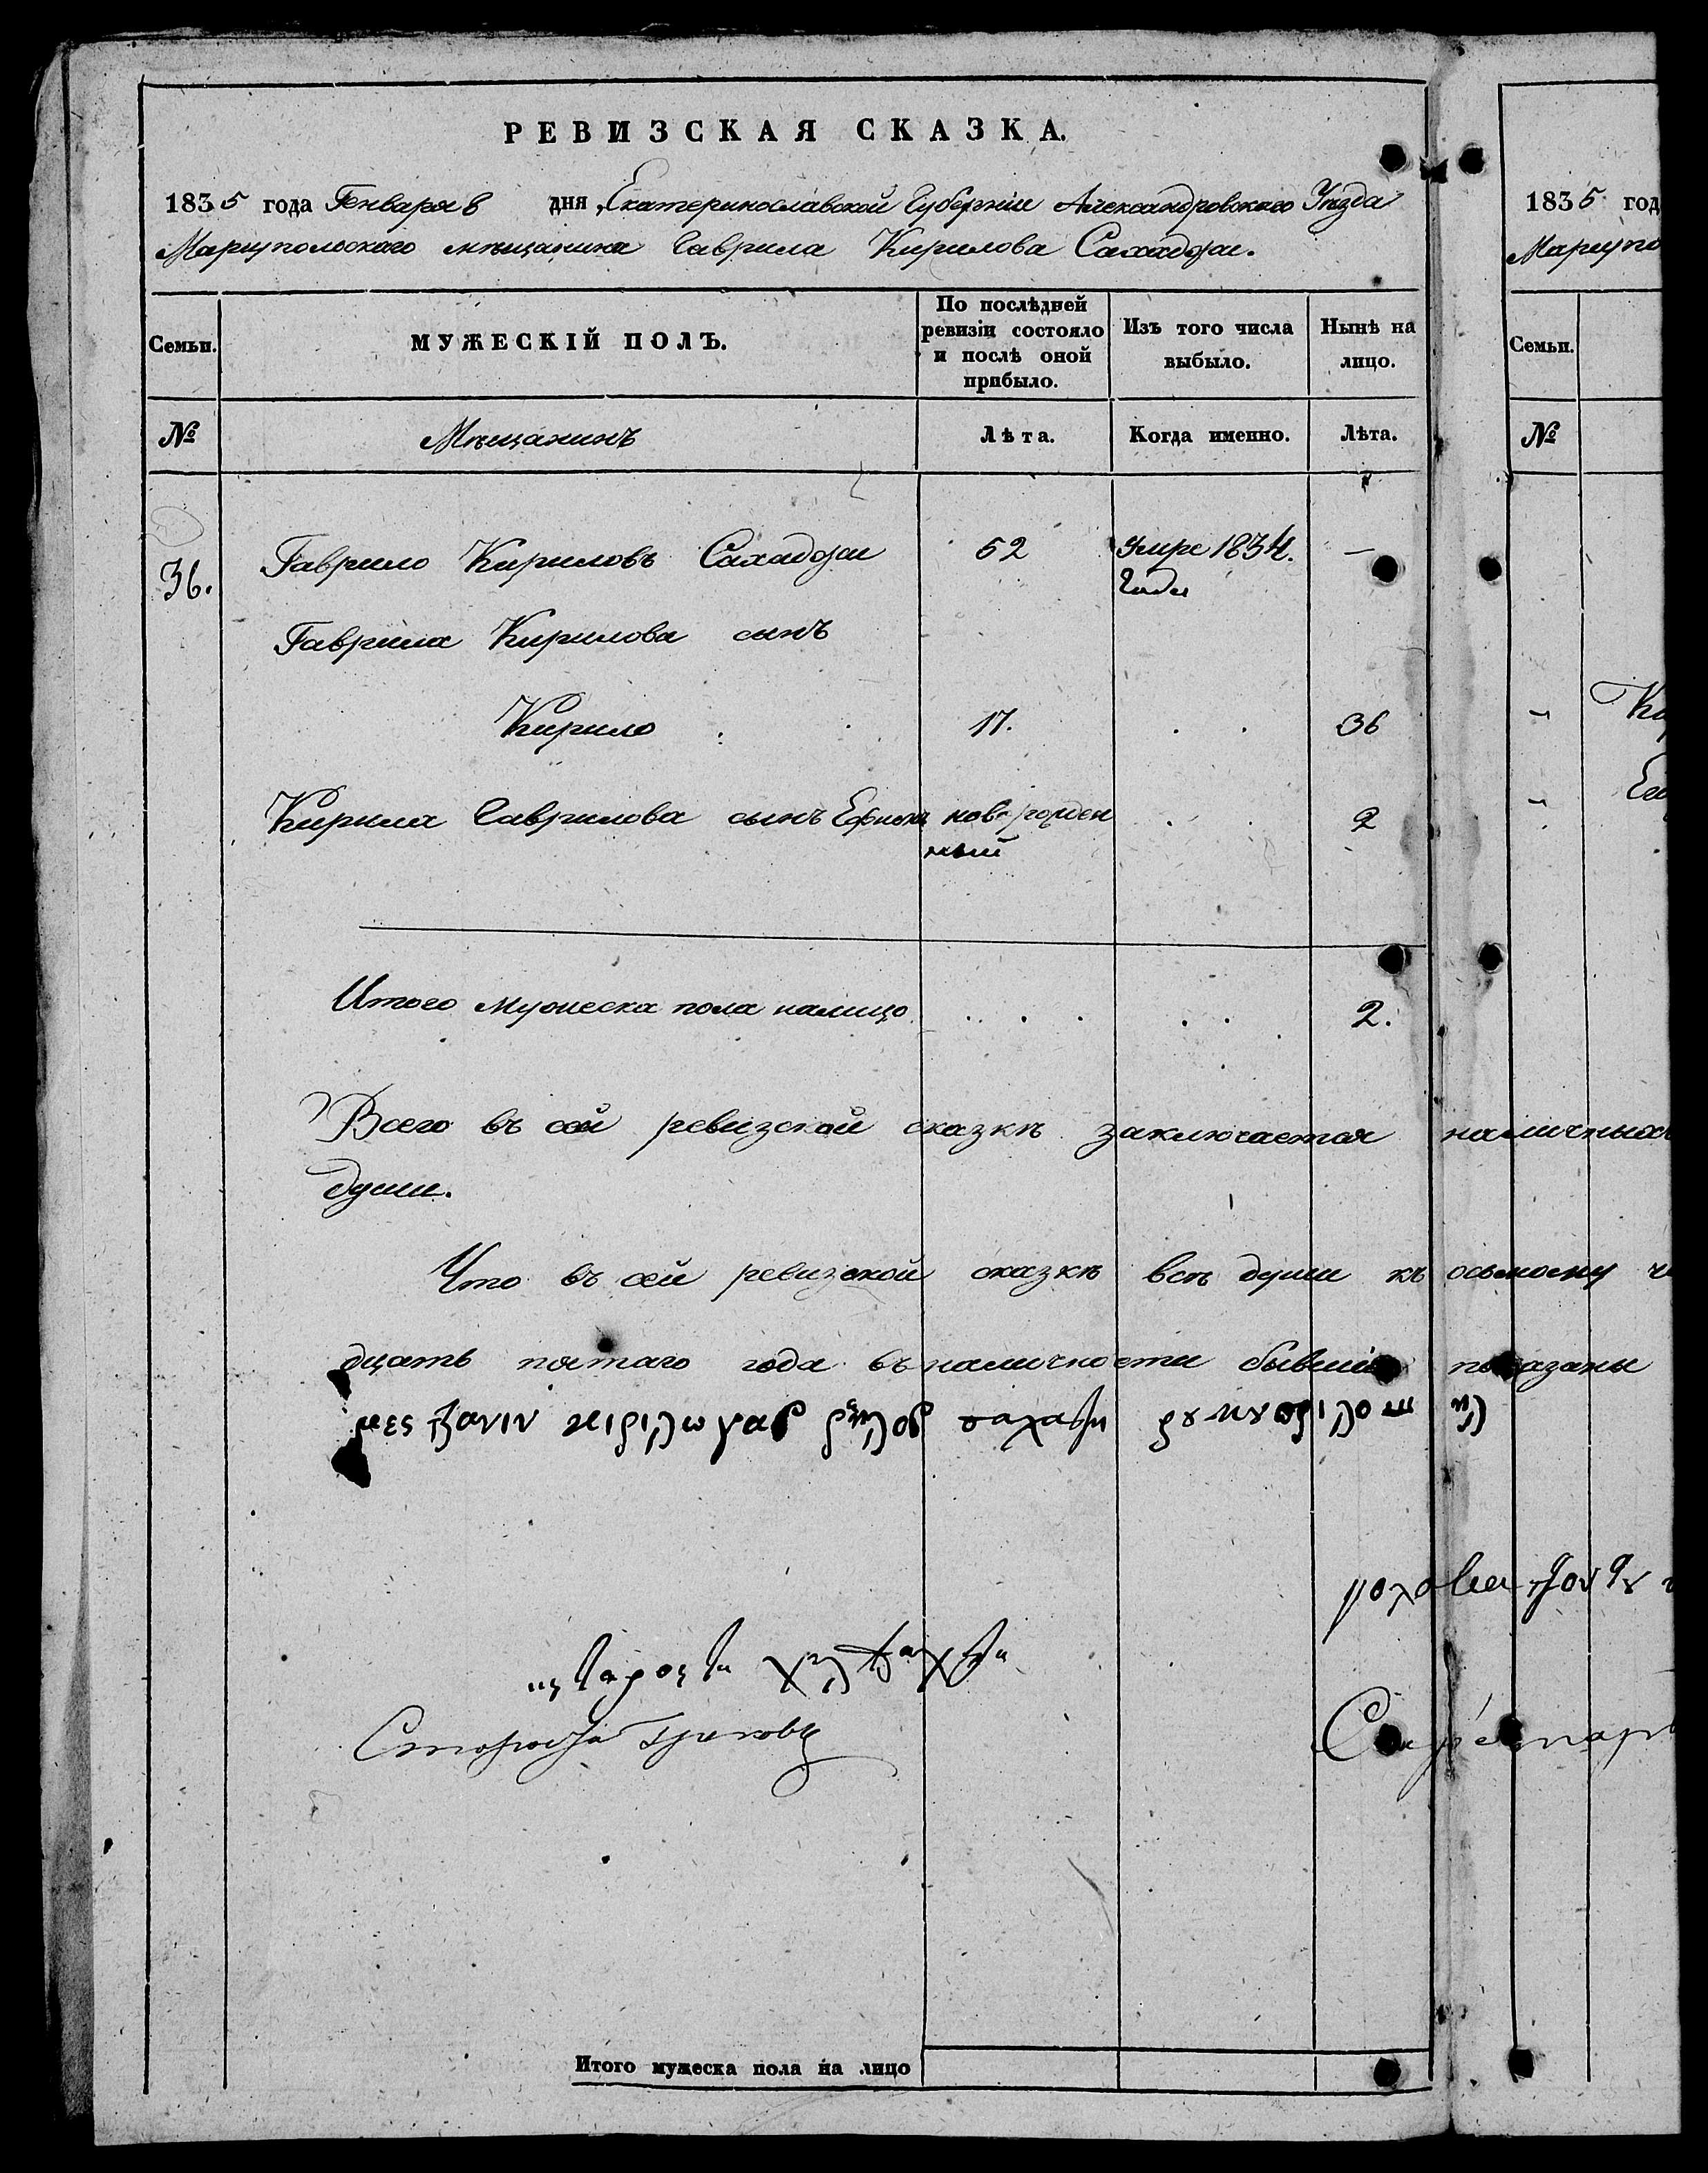 РЕВИЗСКАЯ СКАЗКА.
1835 года Генваря 8 дня, Екатеринославской Губерніи Александровскаго Уѣзда
Маріупольскаго мѣщанина Гаврила Кирилова Сахаджи.
Семьи. МУЖЕСКІЙ ПОЛЪ. По послѣдней ревизіи состояло и послѣ оной прибыло. Изъ того числа выбыло. Нынѣ на лицо.
№ Мѣщанинъ Лѣта. Когда именно. Лѣта.
36. Гаврило Кириловъ Сахаджи 52 Умре 1834. —
года
Гаврила Кирилова сынъ
Кирило 17. 36
Кирила Гаврилова сынъ новорожден 2
ный
Итого мужеска пола налицо 2.
Всего въ сей ревизской сказкѣ заключается наличныхъ
души.
Что въ сей ревизской сказкѣ всѣ души къ осьмому
дцать пятаго года въ наличности бывшія показаны
Староста
Итого мужеска пола на лицо
1835 год
Маріупо
Семьи.
№